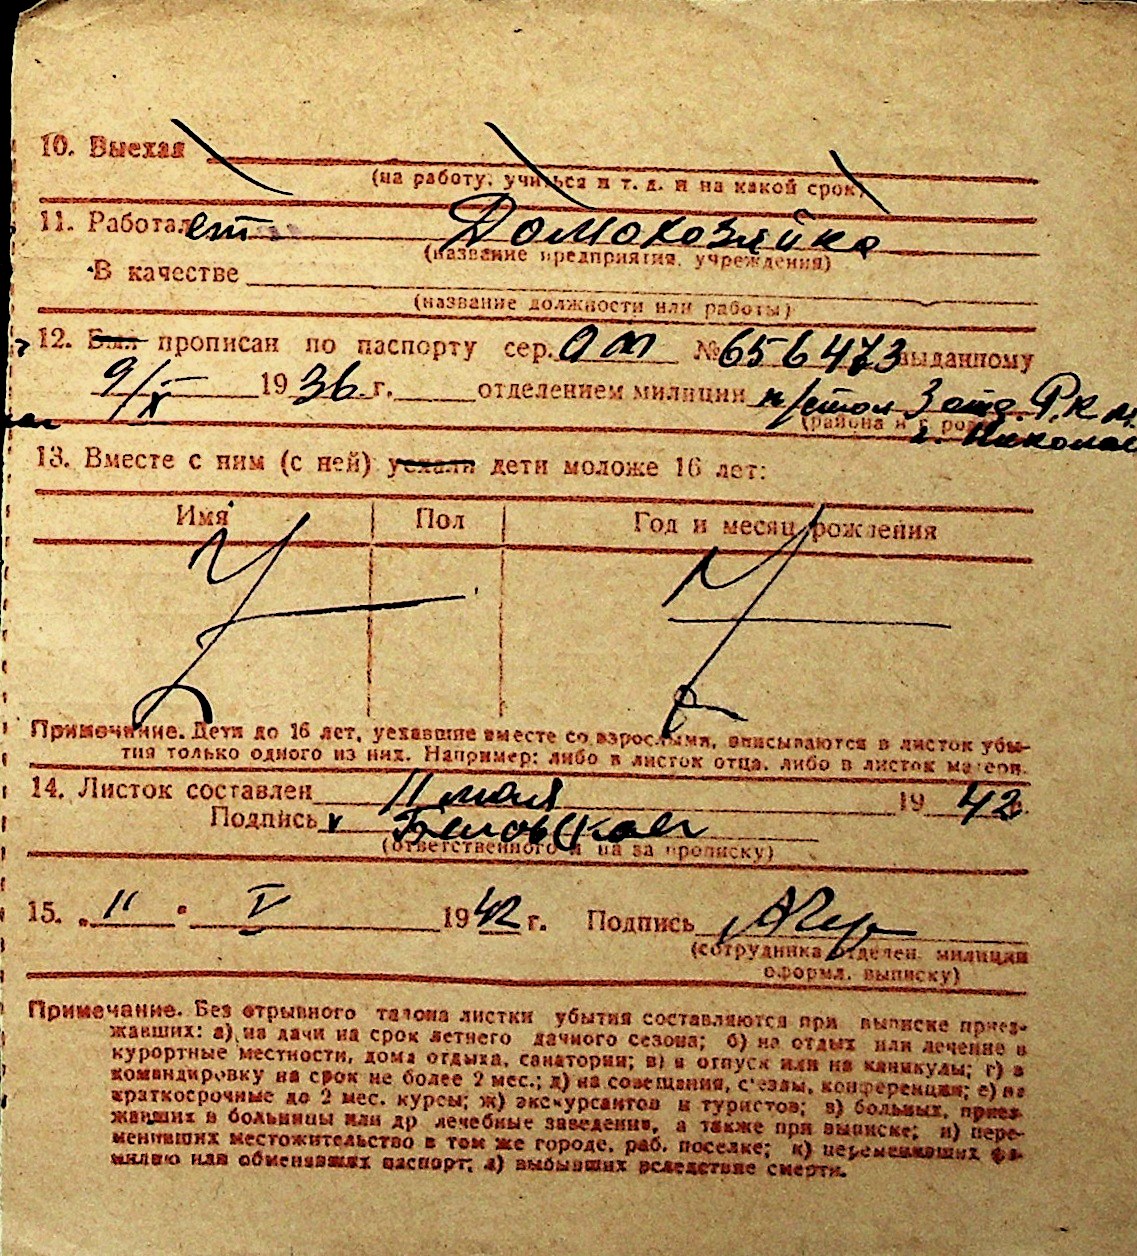 10. Выехал
(на работу, учиться и т. д. и на какой срок)
11. Работает Домохозяйка
(название предприятия, учреждения)
В качестве
(название должности или работы)
12. Был прописан по паспорту сер. ОМ № 656473 выданному
9/IX 1936 г. отделением милиции п/стол 3 отд. Р.К.М.
(района и гор
г. Николаев
13. Вместе с ним (с ней) уехали дети моложе 16 лет:
Имя Пол Год и месяц рождения
Примечание. Дети до 16 лет, уехавшие вместе со взрослыми, вписываются в листок убы-
тия только одного из них. Например: либо в листок отца, либо в листок матери.
14. Листок составлен 11 мая 1942
Подпись Беловская
(ответственного л на за прописку)
15. „11" V 1942 г. Подпись
(сотрудника отделен. милиции
оформл. выписку)
Примечание. Без отрывного талона листки убытия составляются при выписке приез-
жавших: а) на дачи на срок летнего дачного сезона; б) на отдых или лечение в
курортные местности, дома отдыха, санатории; в) в отпуск или на каникулы; г) в
командировку на срок не более 2 мес.; д) на совещания, с'езды, конференции; е) на
краткосрочные до 2 мес. курсы; ж) экскурсантов и туристов; з) больных, приез-
жавших в больницы или др лечебные заведения, а также при выписке; и) пере-
менивших местожительство в том же городе, раб. поселке; к) переменивших фа-
милию или обменявших паспорт; л) выбывших вследствие смерти.